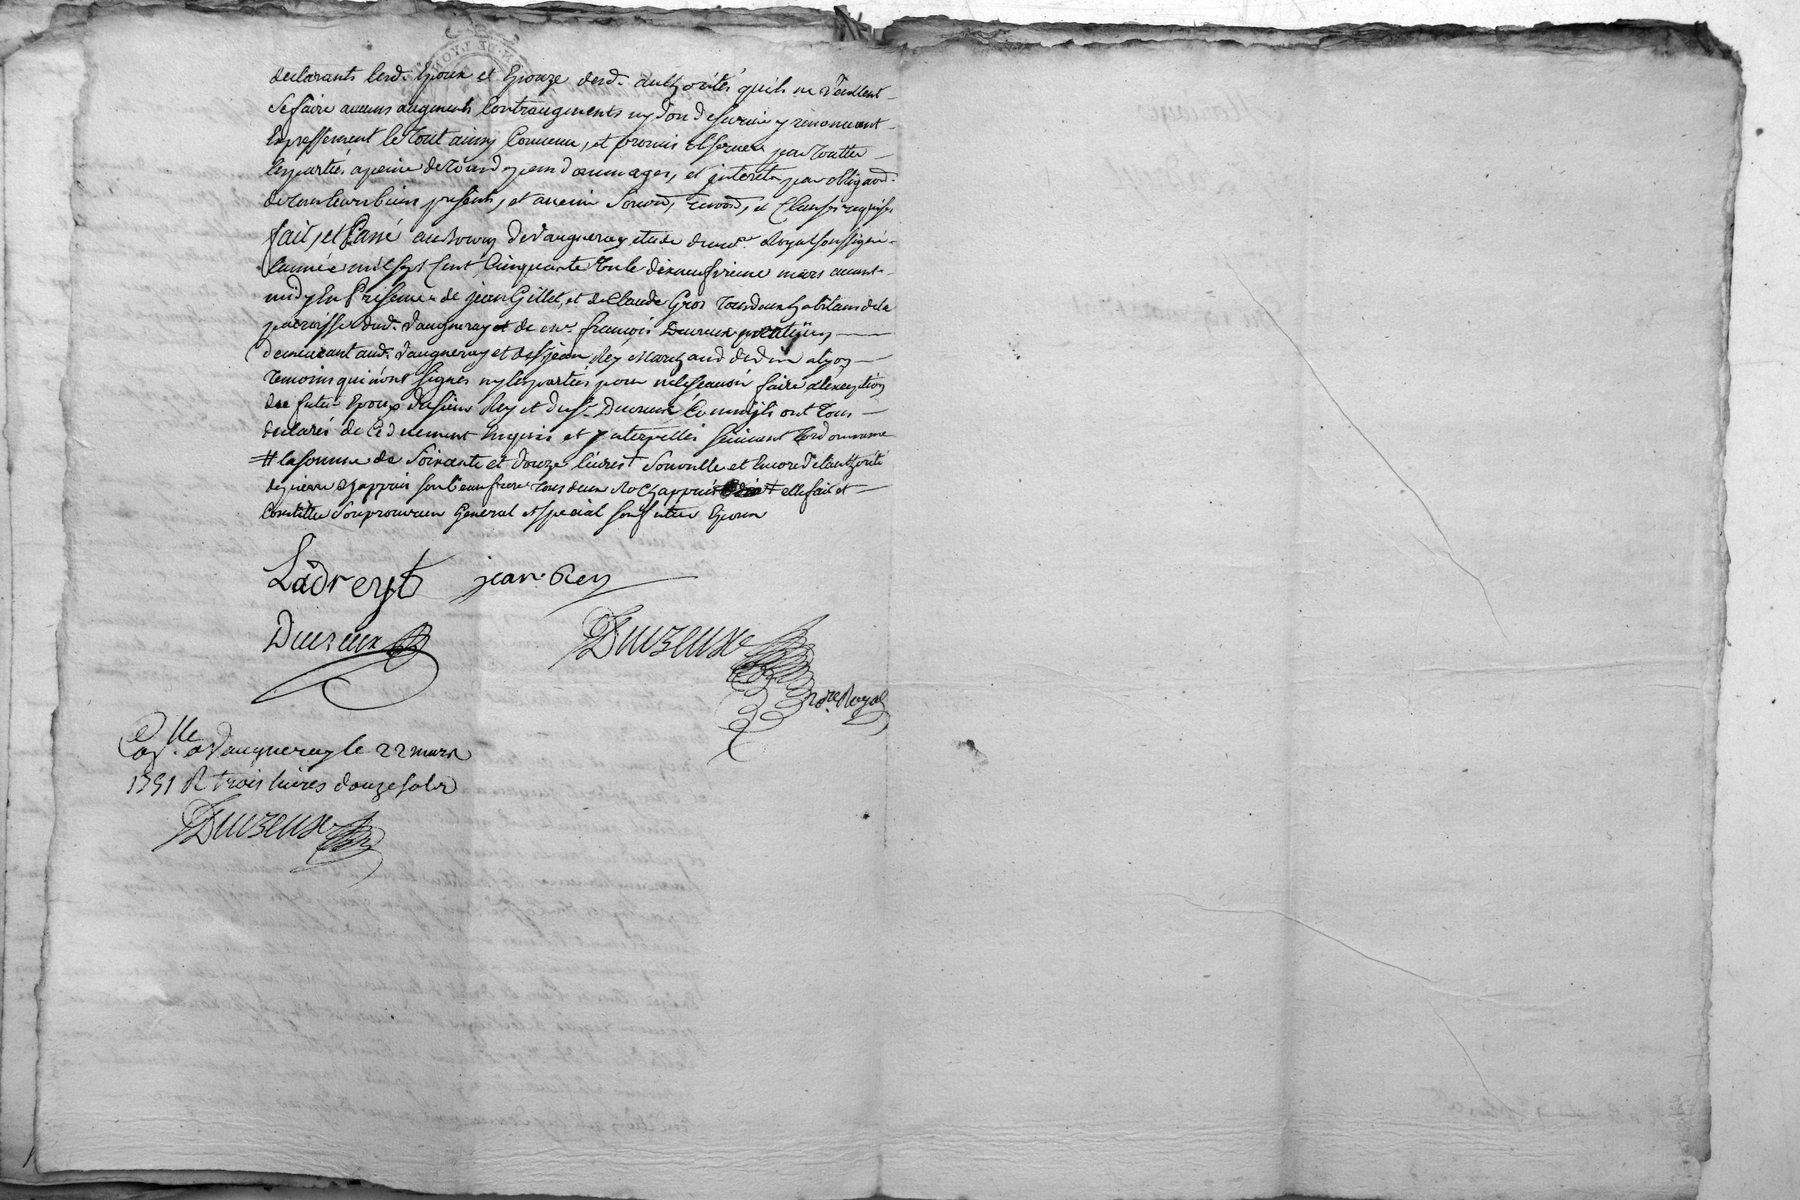 declarants lesd. Epoux et Epouze desd. authorités quils ne veullent
se faire aucuns augments contraugments ny don de survie y renoncant
Expressement le tout ainsy convenu, et promis observer par touttes
les parties a peine de tous depens dommages, et interets par obligaon.
de tous leurs biens presents, et avenir soumis, renon, et clauses requises
fait, et Passé au bourg de Vaugneray etude du nre. Royal soussigné
l'année mil sept cent cinquante un le dixneufvieme mars avant
midy En presence de jean Gillet, et de Claude Gros tous deux habitans de la
parroisse dud. Vaugneray et de me. francois Ducreux praticien,
demeurant aud. Vaugneray et de sr jean Rey marchand de vin a lyon
temoins qui n'ont signés ny les parties pour ne le scavoir faire a l'exception
du futur Epoux du sieur Rey et dud. sr. Ducreux
declarés de ce duement enquis et interpellés suivant l'ordonnance
# la somme de soixante et douze livres + souville et encore de l'authorité
de pierre chappuis son beaufrere tous deux + elle fait et
constitue son procureur General et special son futur Epoux
Ladreyt jean Rey
Ducreux
Ducreux
nore Royal
Collé a Vaugneray le 22 mars
1751 R trois livres douze sols
Ducreux